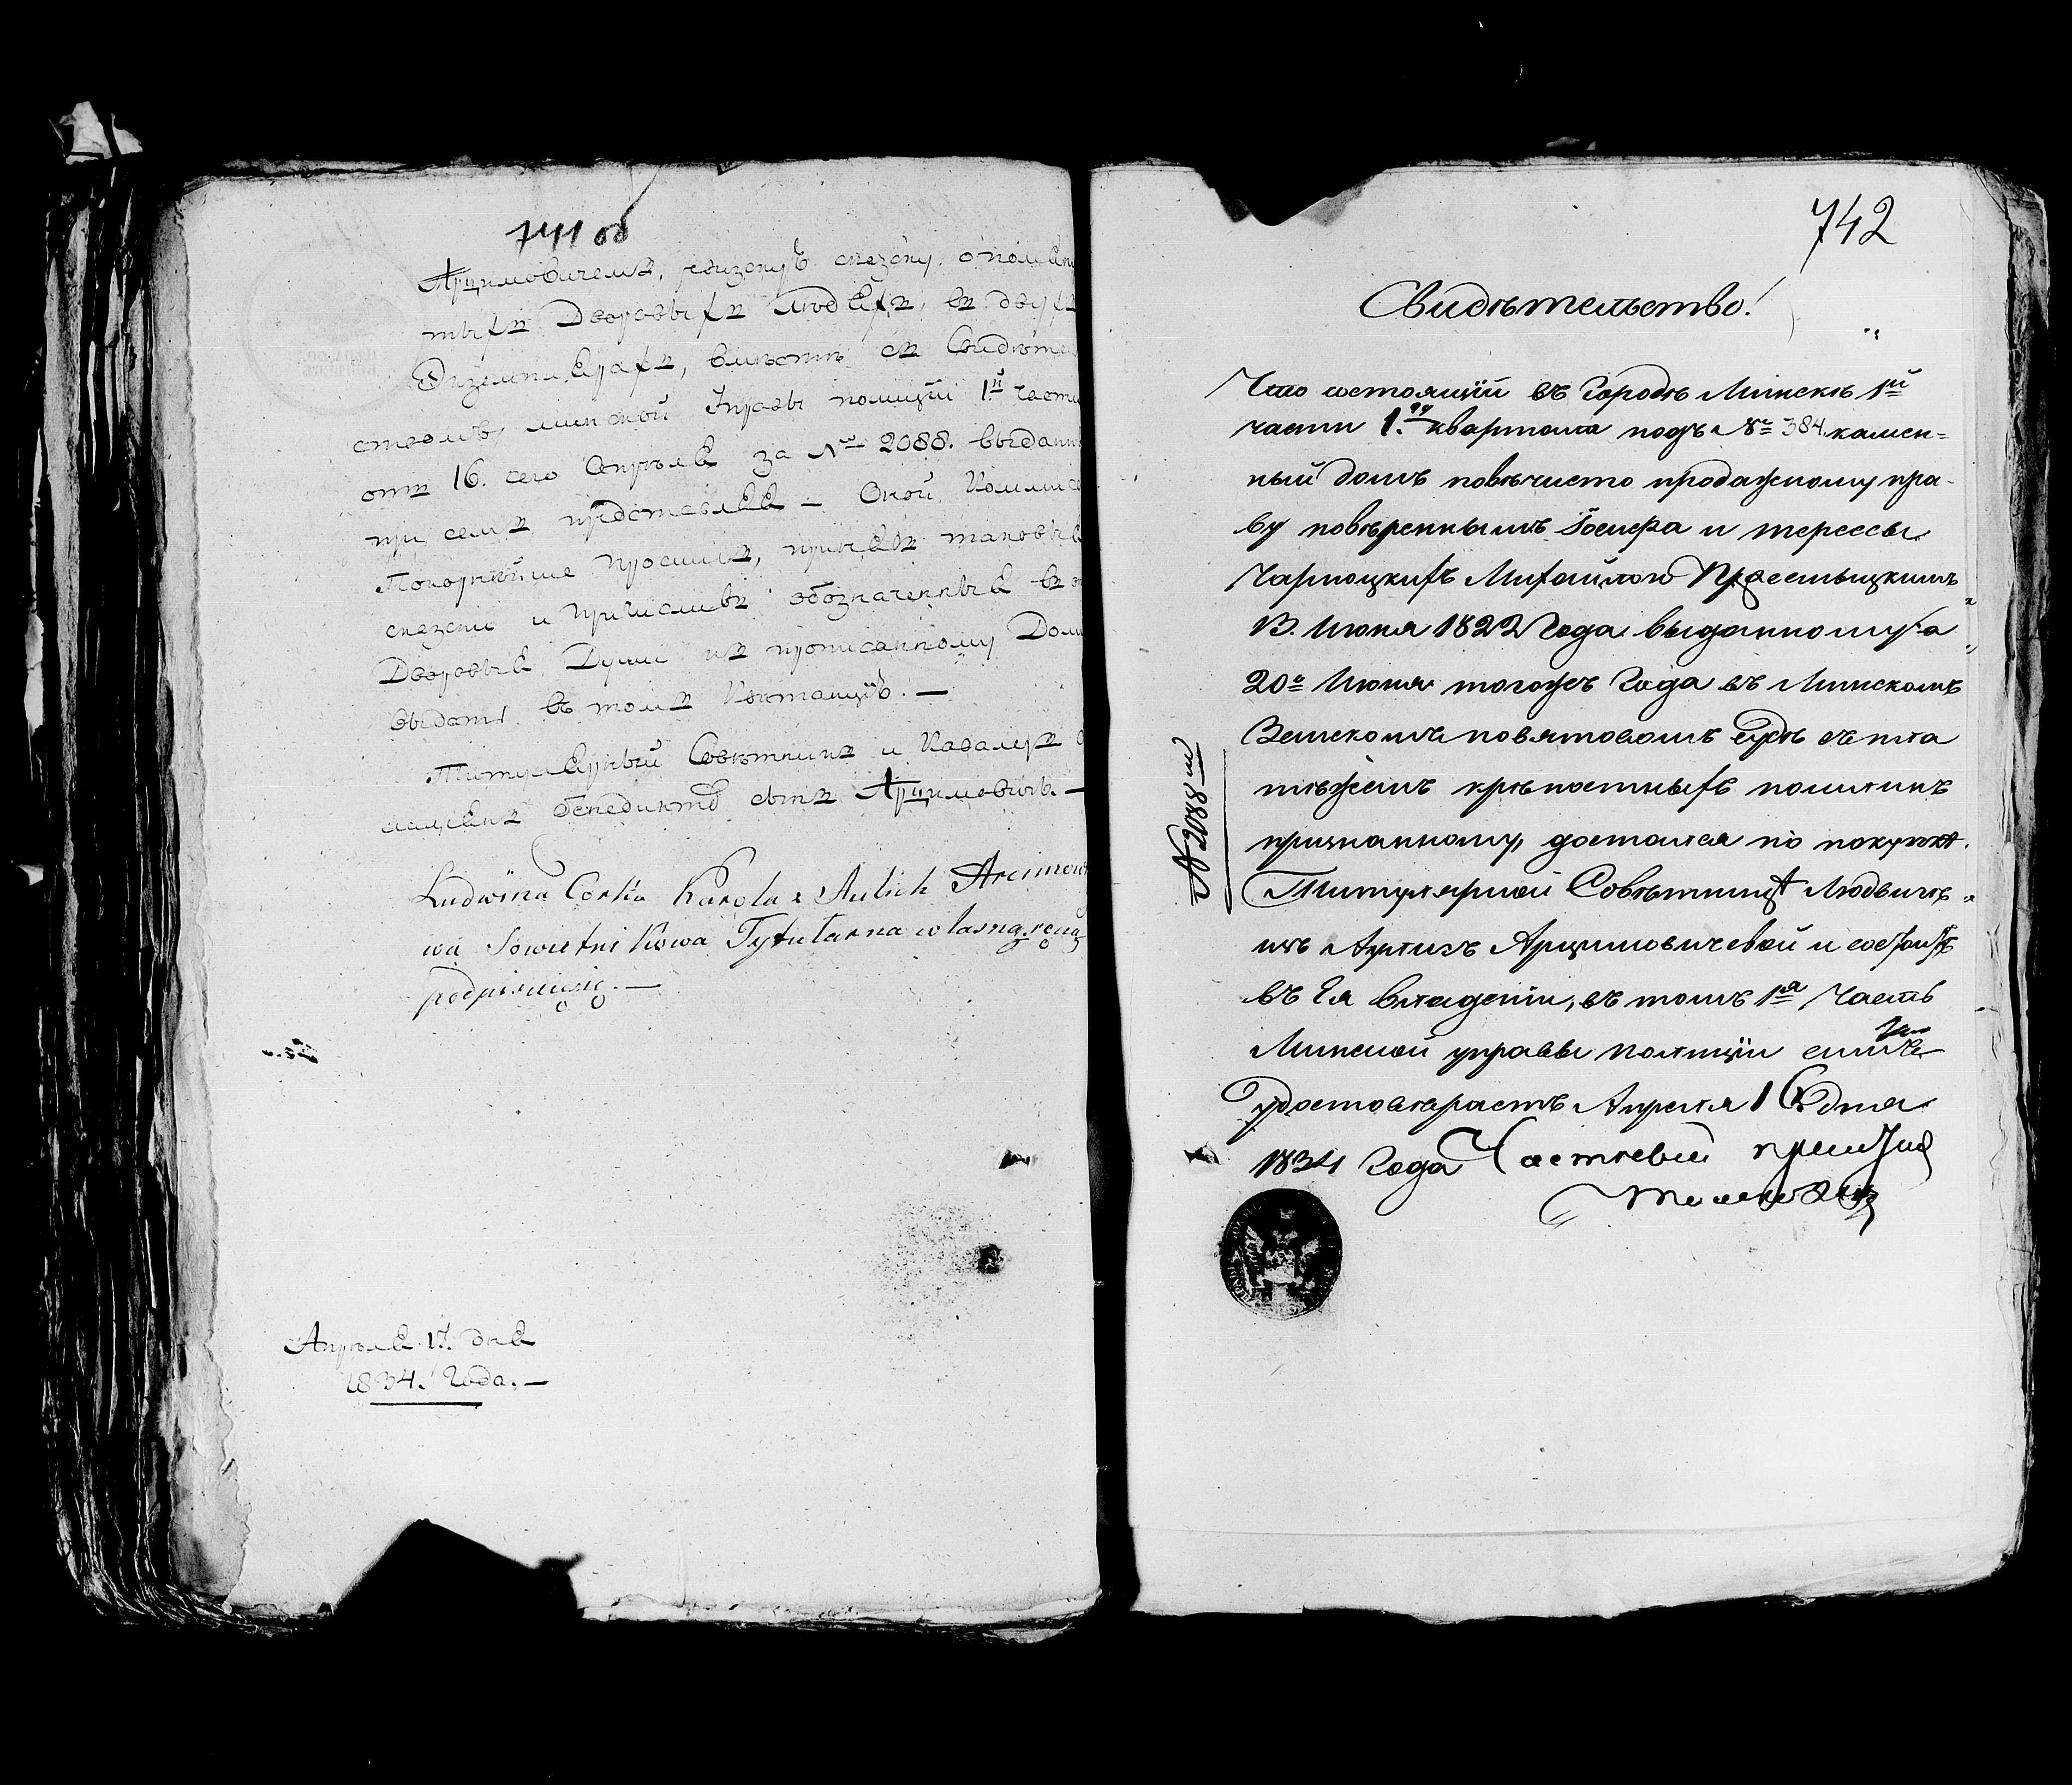 741 об
Арцимовичемъ, ревизскую сказку о помяну
тыхъ Дворовыхъ Людяхъ, въ двухъ
Экземплярахъ, вместе съ Свидѣтел
ствомъ минской Управы полиціи 1й части
отъ 16. сего Апрѣля за №мъ 2088. выданны
при семъ представляя — Оной Коммисс
Покорнѣйше просимъ, принявъ таковыя
сказки и причисливъ обозначенныя въ
Дворовыя Души къ прописанному Дому
выдать въ томъ Квитанцію. —
Титулярный Совѣтникъ и Кавалеръ
Бенедиктъ сынъ Арцимовичъ. —
Ludwika Corka Karola z Aulich Arcimow
wa Sowietnikowa Tytularna własną ręką
podpisuię. —
Апрѣля 17. дня
1834. Года. —
742
Свидѣтельство!
Что состоящій въ Городѣ Минскѣ 1й
части 1го квартала подъ № 384. камен=
ный домъ повѣчисто продажному пра-
ву повѣреннымъ Іосифа и терессы
Чарноцкихъ Михайлою
13. Июня 1822 Года выданному а
20го Июня тогожъ Года въ Минскомъ
Земскомъ повятовомъ Судѣ съ пла
тежемъ крѣпостныхъ пошлинъ
признанному, достался по покупкѣ
Титулярной Совѣтницѣ Людвикѣ
изъ Аулихъ Арцимовичевой и состоитъ
въ Ея владеніи, въ томъ 1я Часть
Минской управы полиціи симъ
удостовѣраетъ Апреля 16 дня
1834 Года Частный приставъ
№ 2088й